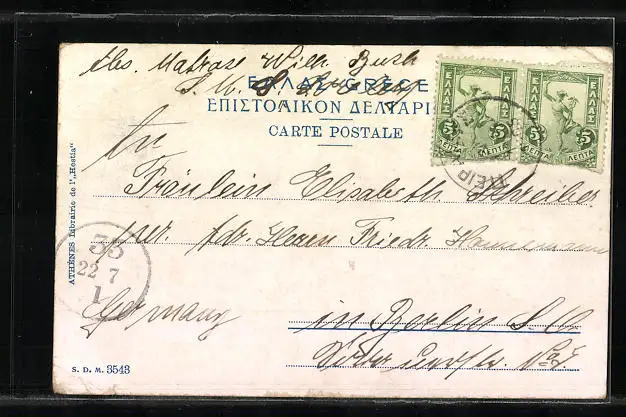 Abs. Matrose Wilh. Bush
S. M. S.
ΕΛΛΑΣ-GRÈCE
ΕΠΙΣΤΟΛΙΚΟΝ ΔΕΛΤΑΡΙ
CARTE POSTALE
ΕΛΛΑΣ ΕΛΛΑΣ
5 5 5 5
ΛΕΠΤΑ ΛΕΠΤΑ
ΠΕΙΡ
An
Fräulein Elisabeth Schreiber
pr. Adr. Herrn Friedr.
ATHÈNES librairie de l'„Hestia"
35
22 7
1
Germany
in Berlin S. O.
S. D. M. 3543